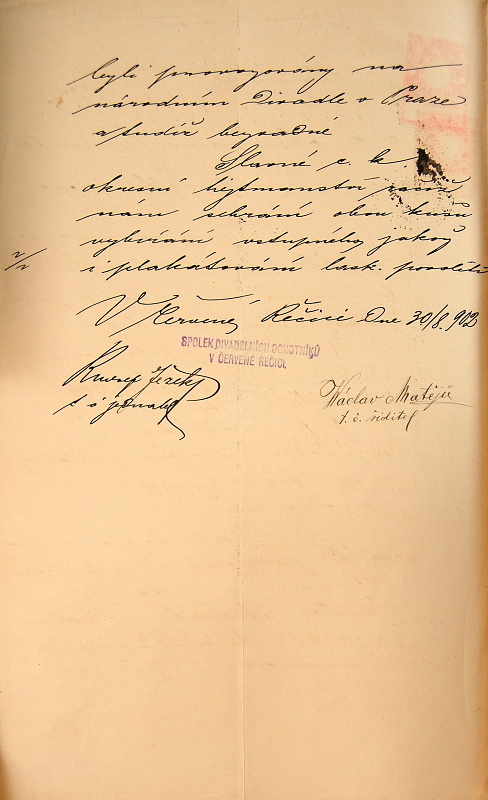 byli provozovány na
národním Divadle v Praze
a tudíž bezvadné
Slavné c. k.
okresní hejtmanství račiž
nám sehrání obou kusů
vybírání vstupného jakož
i plakátování lask. povoliti
V Červené Řečici dne 30/8. 902
SPOLEK DIVADELNÍCH OCHOTNÍKŮ
V ČERVENÉ ŘEČICI.
Ježek
Václav Matějů
t. č. řiditel